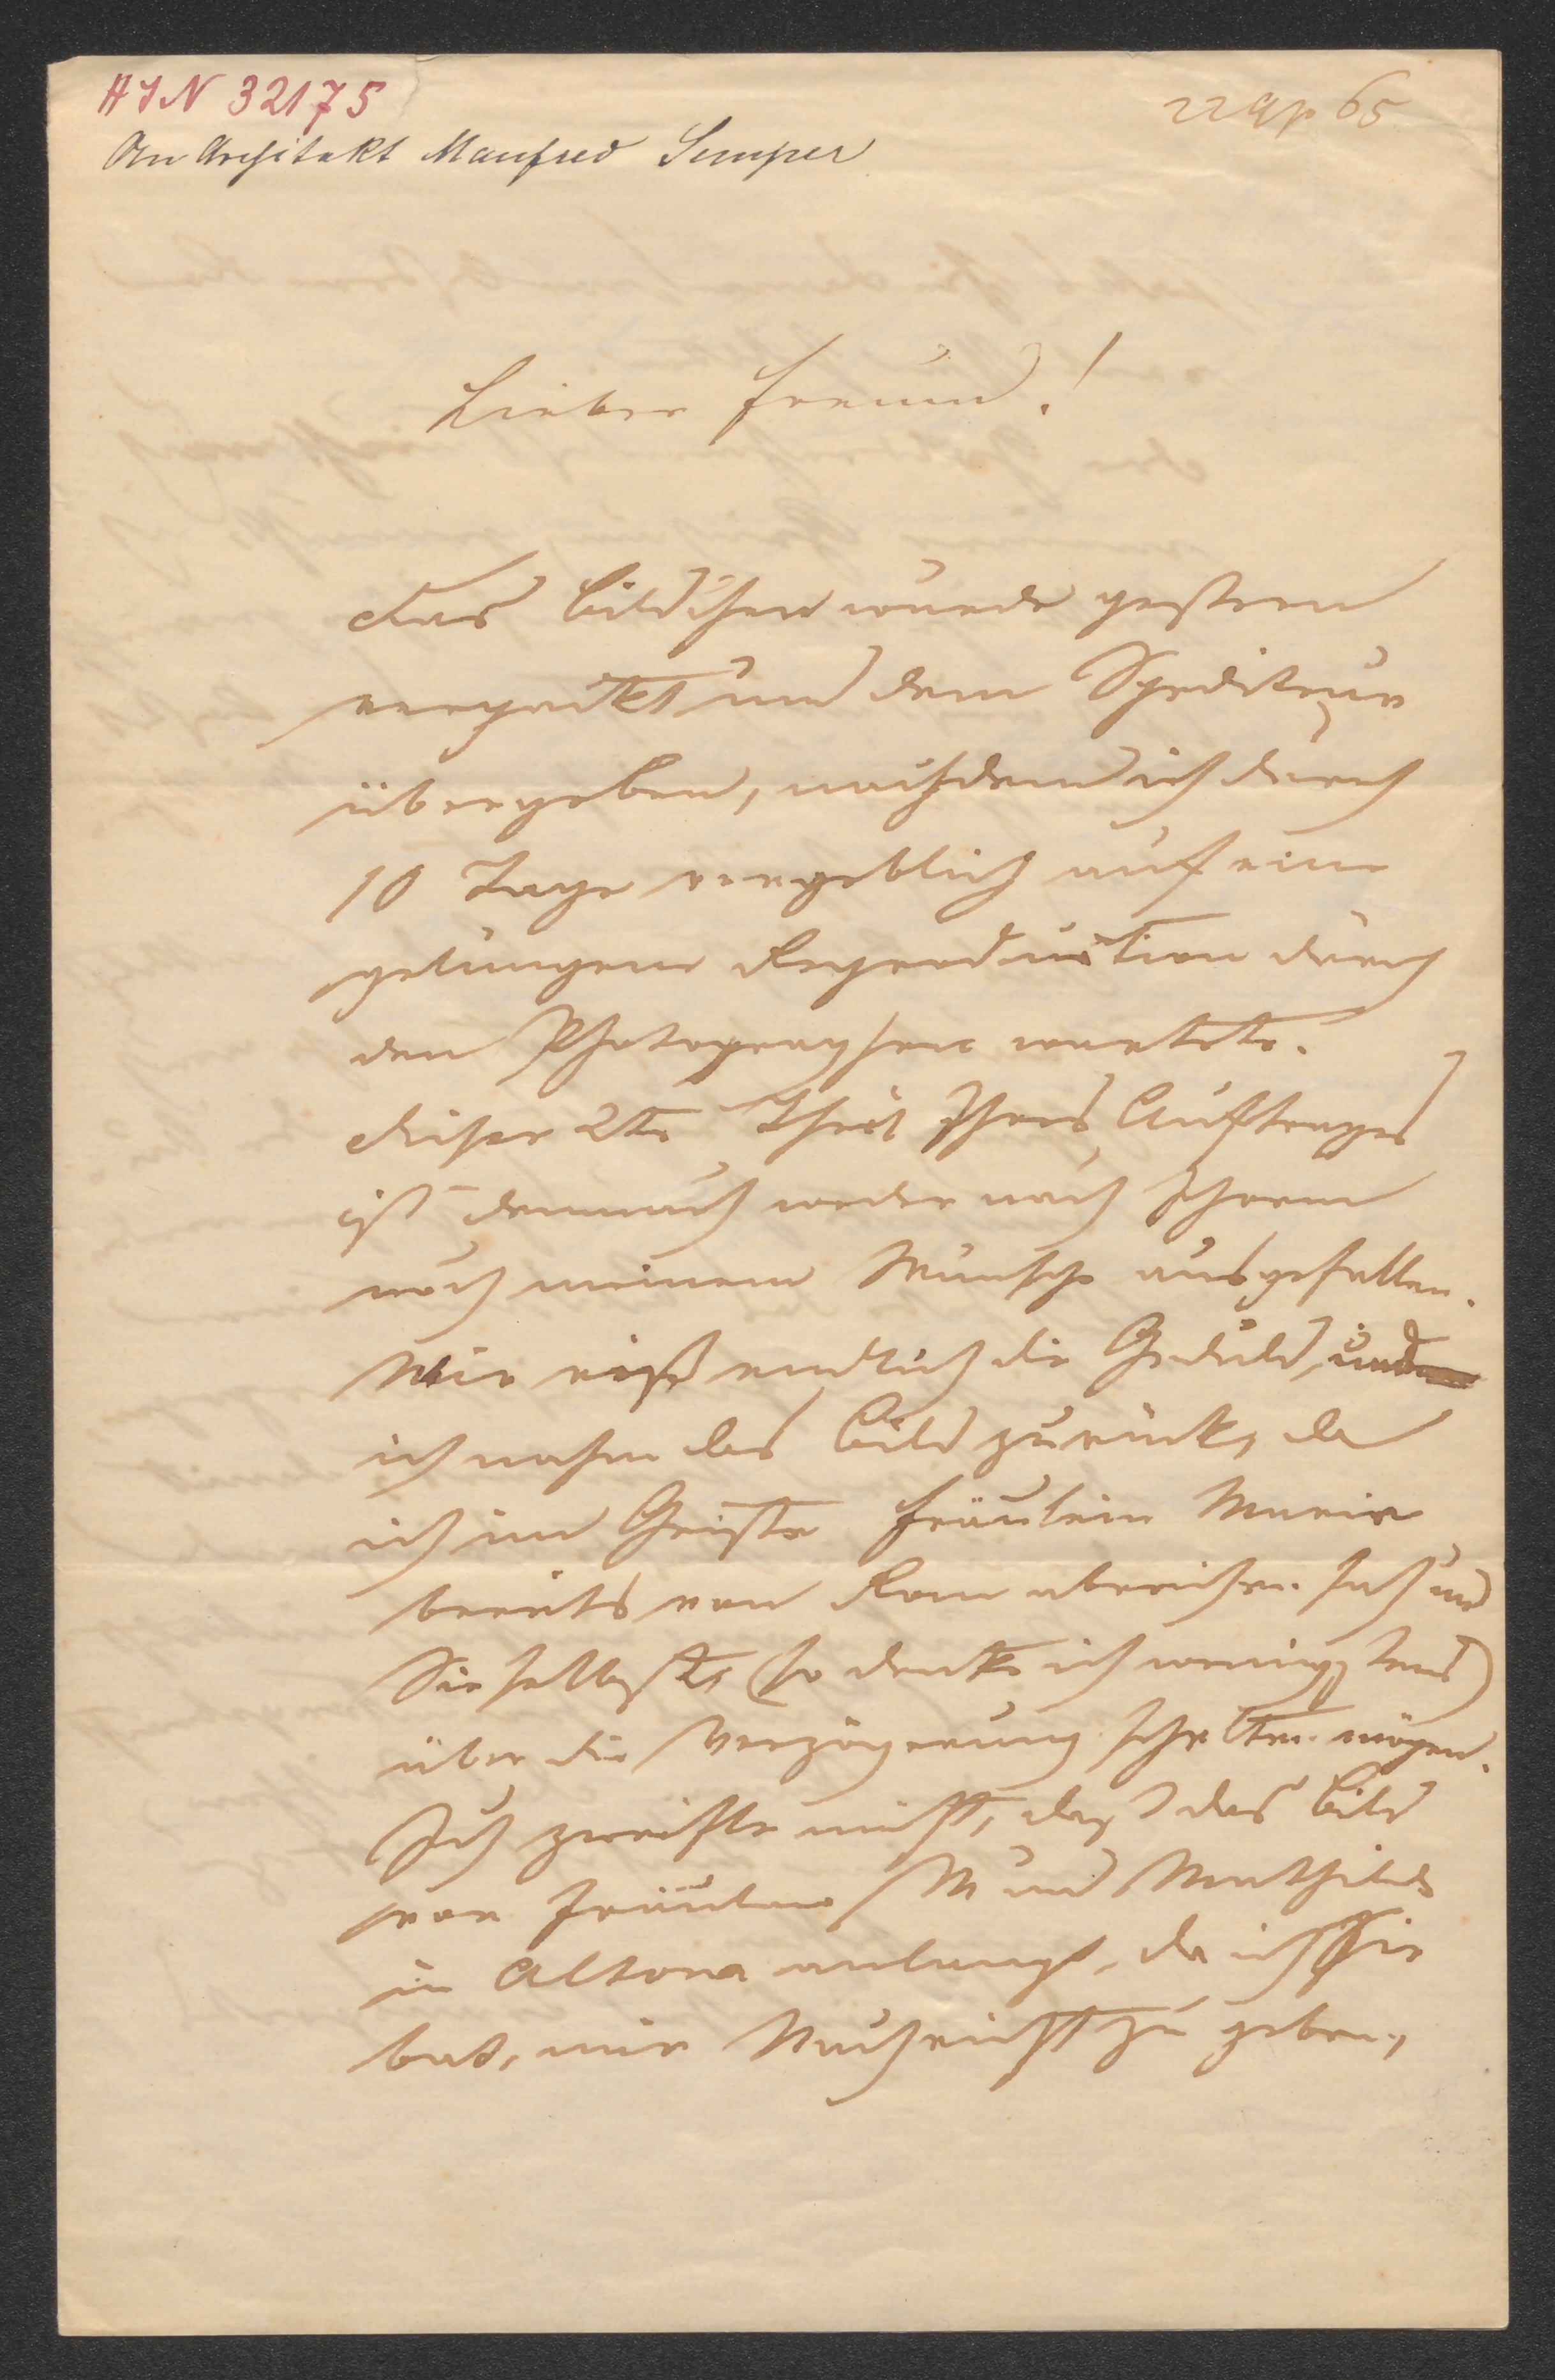 HIN 32175
22 Ap 65
An Architekt Manfred Semper
Lieber Freund!
Das Bildchen wurde gestern
verpackt und dem Spediteur
übergeben, nachdem ich durch
10 Tage vergeblich auf eine
gelungene Reproduction durch
den Photographen wartete.
Dieser 2te Theil Ihres Auftrages
ist demnach weder nach Ihrem
noch meinem Wunsche ausgefallen.
Mir riß endlich die Geduld, und
ich nahm das Bild zurück, da
ich im Geiste Fräulein Marie
bereits von Rom abreisen sah und
Sie selbst (so denke ich wenigstens)
über die Verzögerung schelten mögen.
Ich zweifle nicht, daß das Bild
von Fräulein M und Mathilde
in Altona anlangt, da ich Sie
bat, mir Nachricht zu geben,